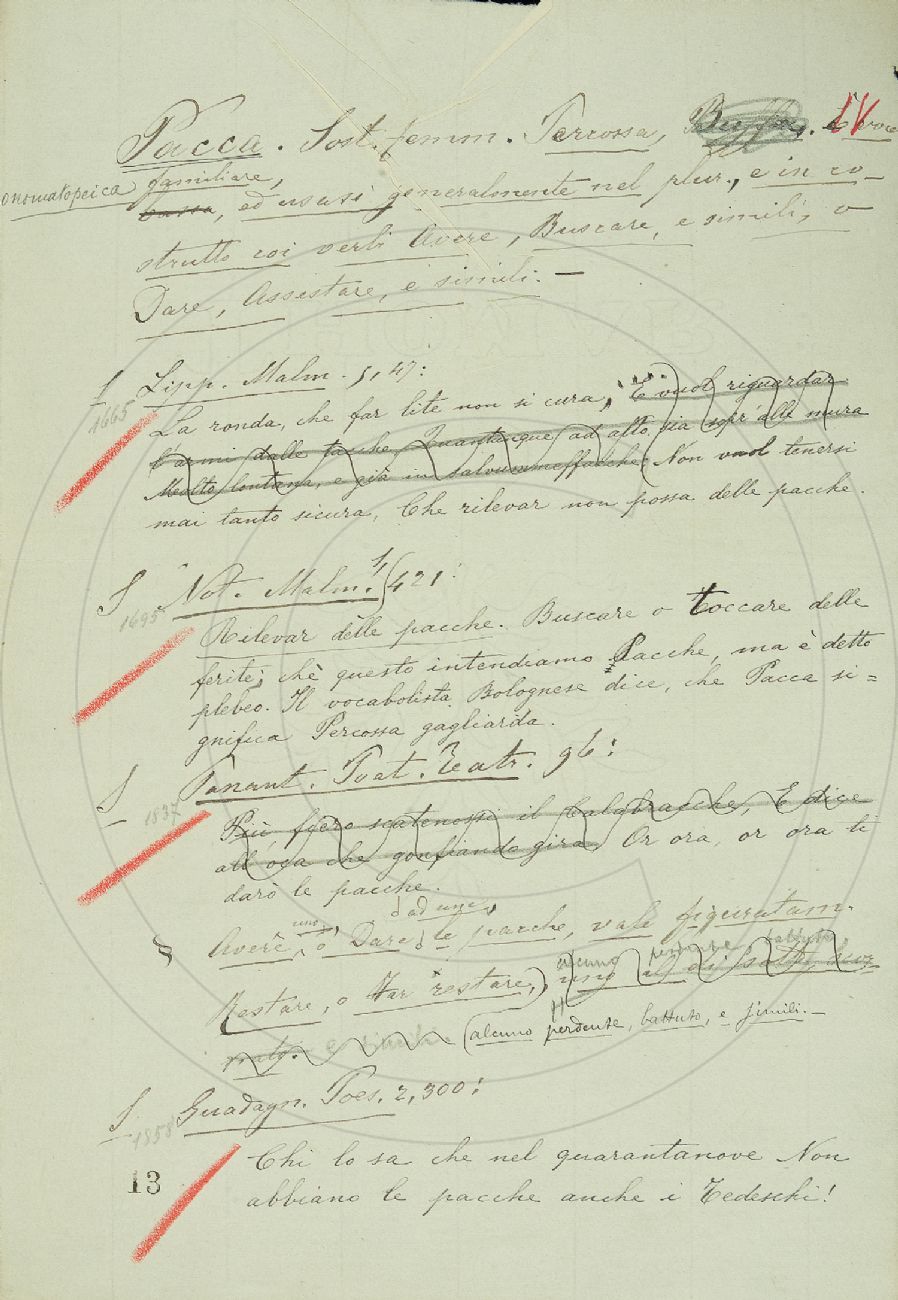 IV
Pacca. Sost. femm. Percossa, Buffa. È voce
onomatopeica familiare,
bassa, ed usasi generalmente nel plur., e in co-
strutto coi verbi Avere, Buscare, e simili, o
Dare, Assestare, e simili. —
§ Lipp. Malm. 5, 47:
1665
La ronda, che far lite non si cura, .... E vuol riguardar
l'armi dalle tacche, Quantunque ad alto sia sopr'alle mura
Molto lontana, e già in salvummeffacche Non vuol tenersi
mai tanto sicura, Che rilevar non possa delle pacche.
§ Not. Malm. 1, 421:
1695
Rilevar delle pacche. Buscare o toccare delle
ferite; chè questo intendiamo Pacche, ma è detto
plebeo. Il vocabolista Bolognese dice, che Pacca si=
gnifica Percossa gagliarda.
§ Panant. Poet. Teatr. 96:
1837
Più fiero scatenossi il Calabrache, E dice
all'oca che gonfiando gira. Or ora, or ora ti
darò le pacche.
§ Avere, uno o Dare ad uno le pacche, vale figuratam.
Restare, o Far restare,
alcuno perdente, battuto, e simili. —
§ Guadagn. Poes. 2, 300:
1858
Chi lo sa che nel quarantanove Non
abbiano le pacche anche i Tedeschi!
13